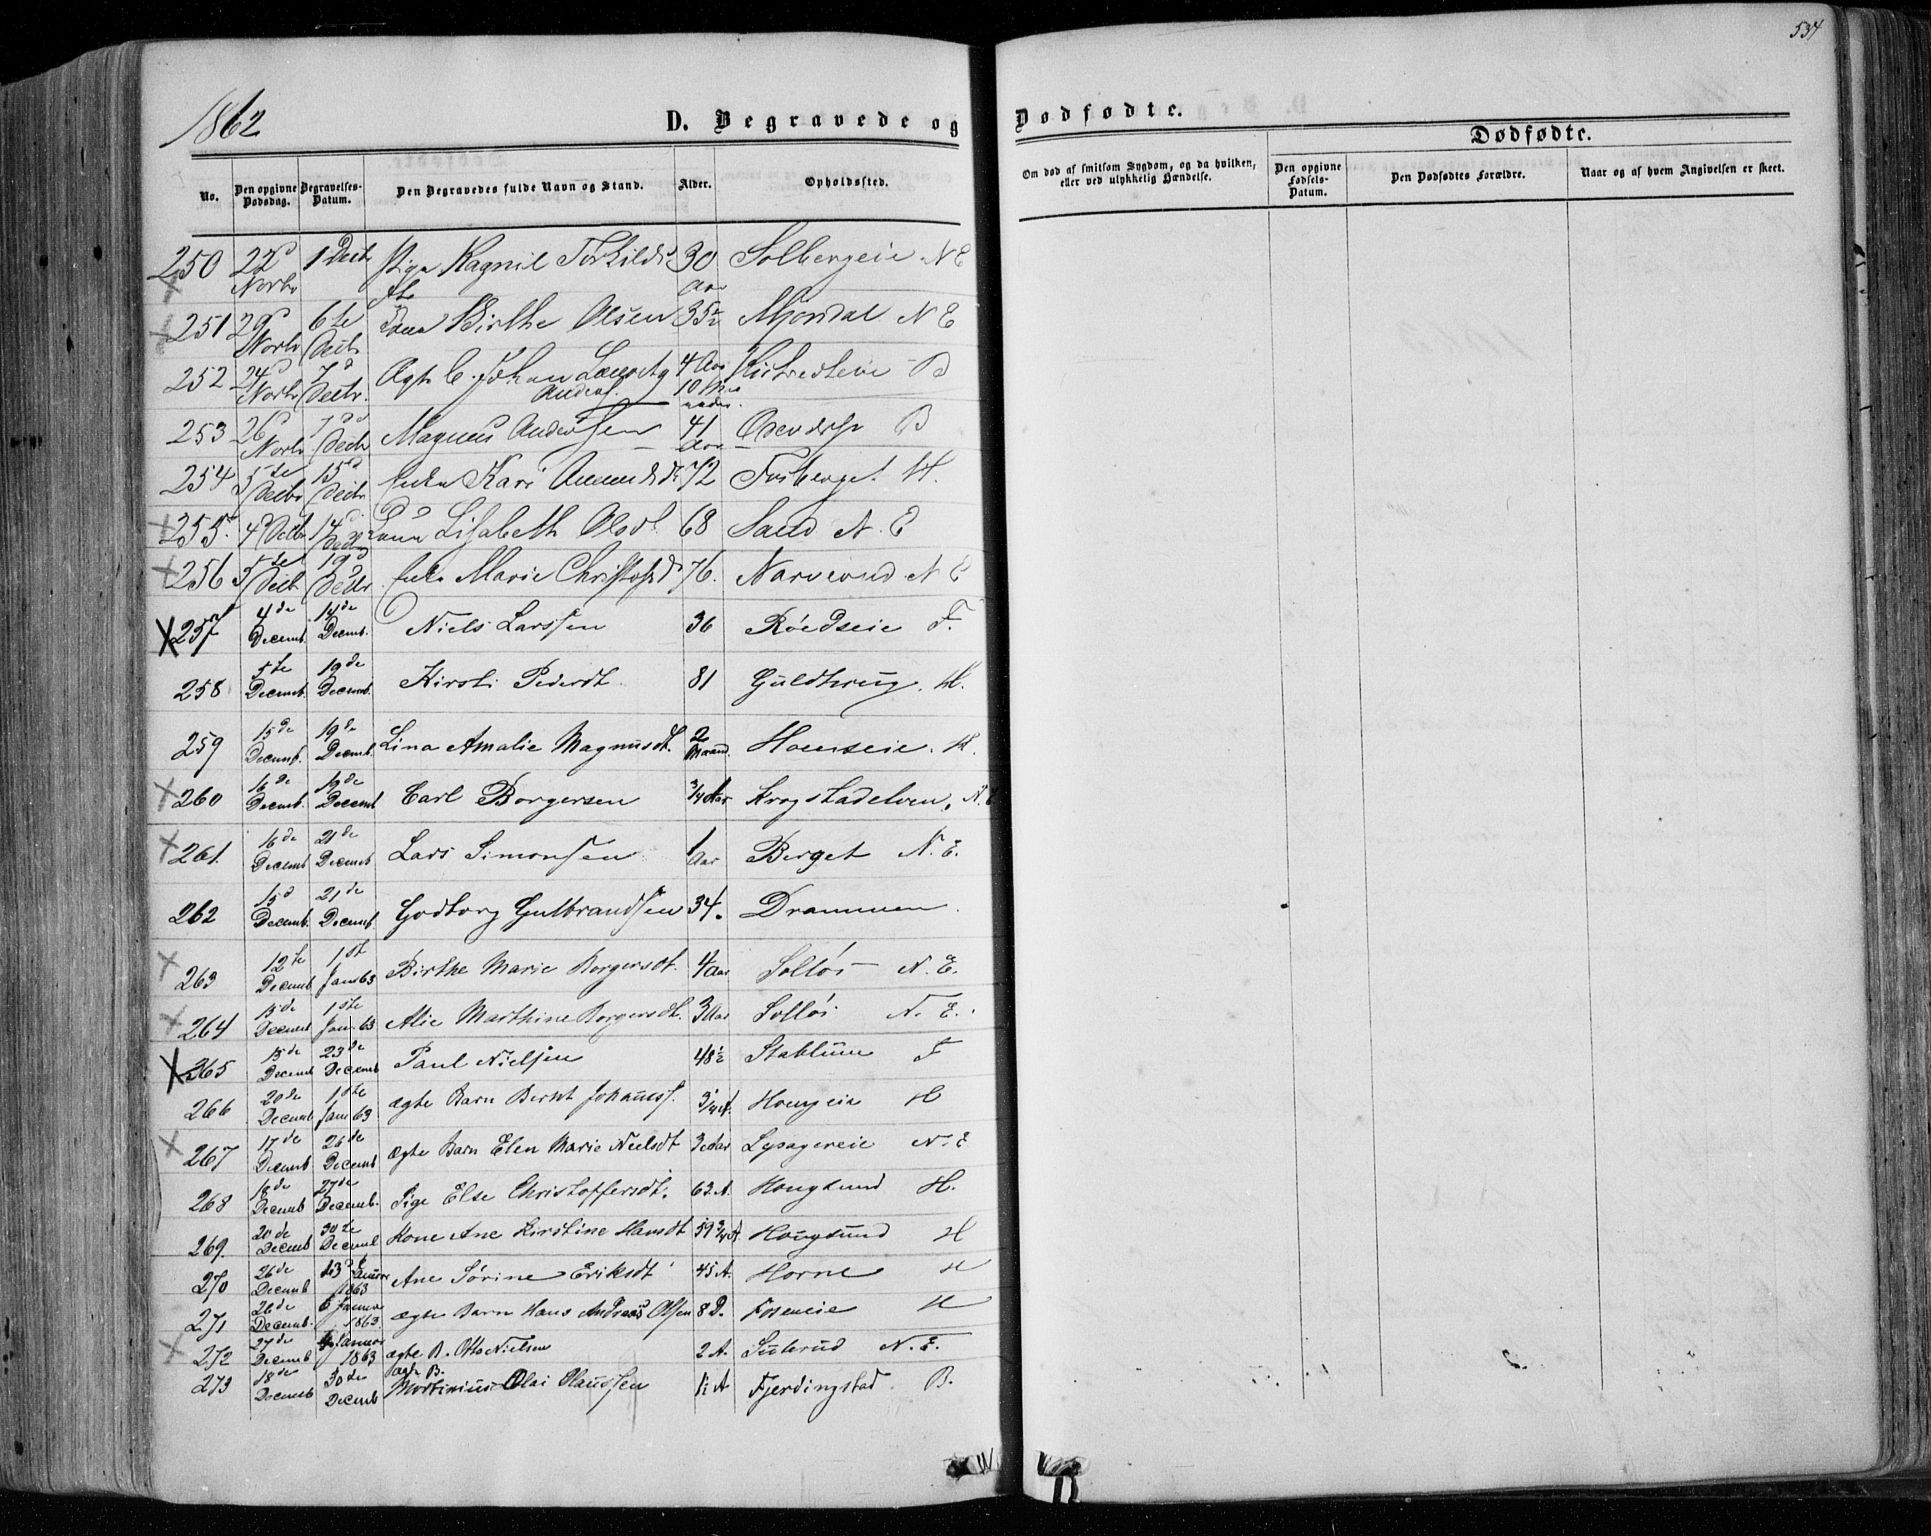 534
1862
D. Begravede og Dødfødte.
Dødfødte.
No. Den opgivne Dødsdag. Begravelses-Datum. Den Begravedes fulde Navn og Stand. Alder. Opholdssted. Om død af smitsom Sygdom, og da hvilken, eller ved ulykkelig Hændelse. Den opgivne Fødsels-Datum. Den Dødfødtes Forældre. Naar og af hvem Angivelsen er skeet.
250 22 Novbr 1 Decbr Pige Ragnil Torkilds 30 Aar Solbergeie N E
251 29 Novbr 6te Decbr Kone Birthe Olsen 35½ Mjøndal N E
252 24 Novbr 7d Decbr Ægte B. Johan Anders. 4 Aar 10 B
253 26 Novbr 7de Decbr Magnus Andersen 41 Aar B
254 5te Decbr 15d Decbr Enke Kari Amundsdt 72 Fosberget H.
255. 4d Decbr 14d Decbr Kone Lisabeth Olsdt 68 Sand N. E
256 5te Decbr 19d Decbr Enke Marie Christofsd 76. Narverud N E
257 4de Decemb. 14de Decemb. Niels Larssen 36 Røedseie F.
258 5te Decemb. 19de Decemb. Kirsti Pedersdt. 81 Guldhaug. H.
259 15de Decemb. 19de Decemb. Lina Amalie Magnusdt. 2 Maand. Hornseie. H.
260 16de Decemb. 19de Decemb Carl Borgersen ¾ Aar Krogstadelven, N. E
261. 16de Decemb 21de Decemb Lars Simonsen 1 Aar Berget N. E.
262 15d Decemb. 21de Decemb. Godborg Gulbrandsen 34. Drammen.
263 12te Decemb 1st Jan 63 Birthe Marie Borgersdt. 4 Aar Solløs N. E.
264 15de Decemb 1ste Jan. 63 Alie Marthine Borgersdt. 3 Aar Solløs N. E.
265 15de Decemb 23de Decemb Paul Nielsen 48½ Stablum F
266 20de Decemb 1ste Jan 63 ægte Barn Bernt Johanness. ¾ A. Hougeie H
267 17de Decemb 26de Decemb ægte Barn Elen Marie Nielsdt 3 Aar Lysagereie N. E
268 18de Decemb 27de Decemb. Pige Else Christoffersdt. 63 A. Hougsund H.
269. 20de Decemb 30te Decemb Kone Ane Kirstine Hansdt 59¾ A Hougsund H
270 26de Decemb 3 Januar 1863 Ane Sørine Eriksdt 45 A. Horne H
271 26de Decemb. 6 Januar 1863. ægte Barn Hans Andreas Olsen 8 D. Foseneie H
272 27de Decemb Januar 1863 ægte B. Otto Nielsen 2 A. Sulerud N. E.
273 18de Decemb 30te Decemb ægte B. Martinius Olai Olaussen A Fjerdingstad. B.